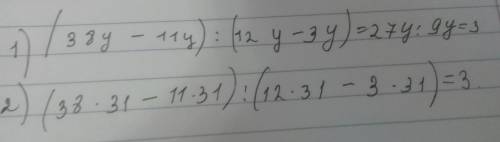 1) (38y - 11y) : (12y - 3y) = 27y : 9y = 3
2) (38 · 31 - 11 · 31) : (12 · 31 - 3 · 31) = 3